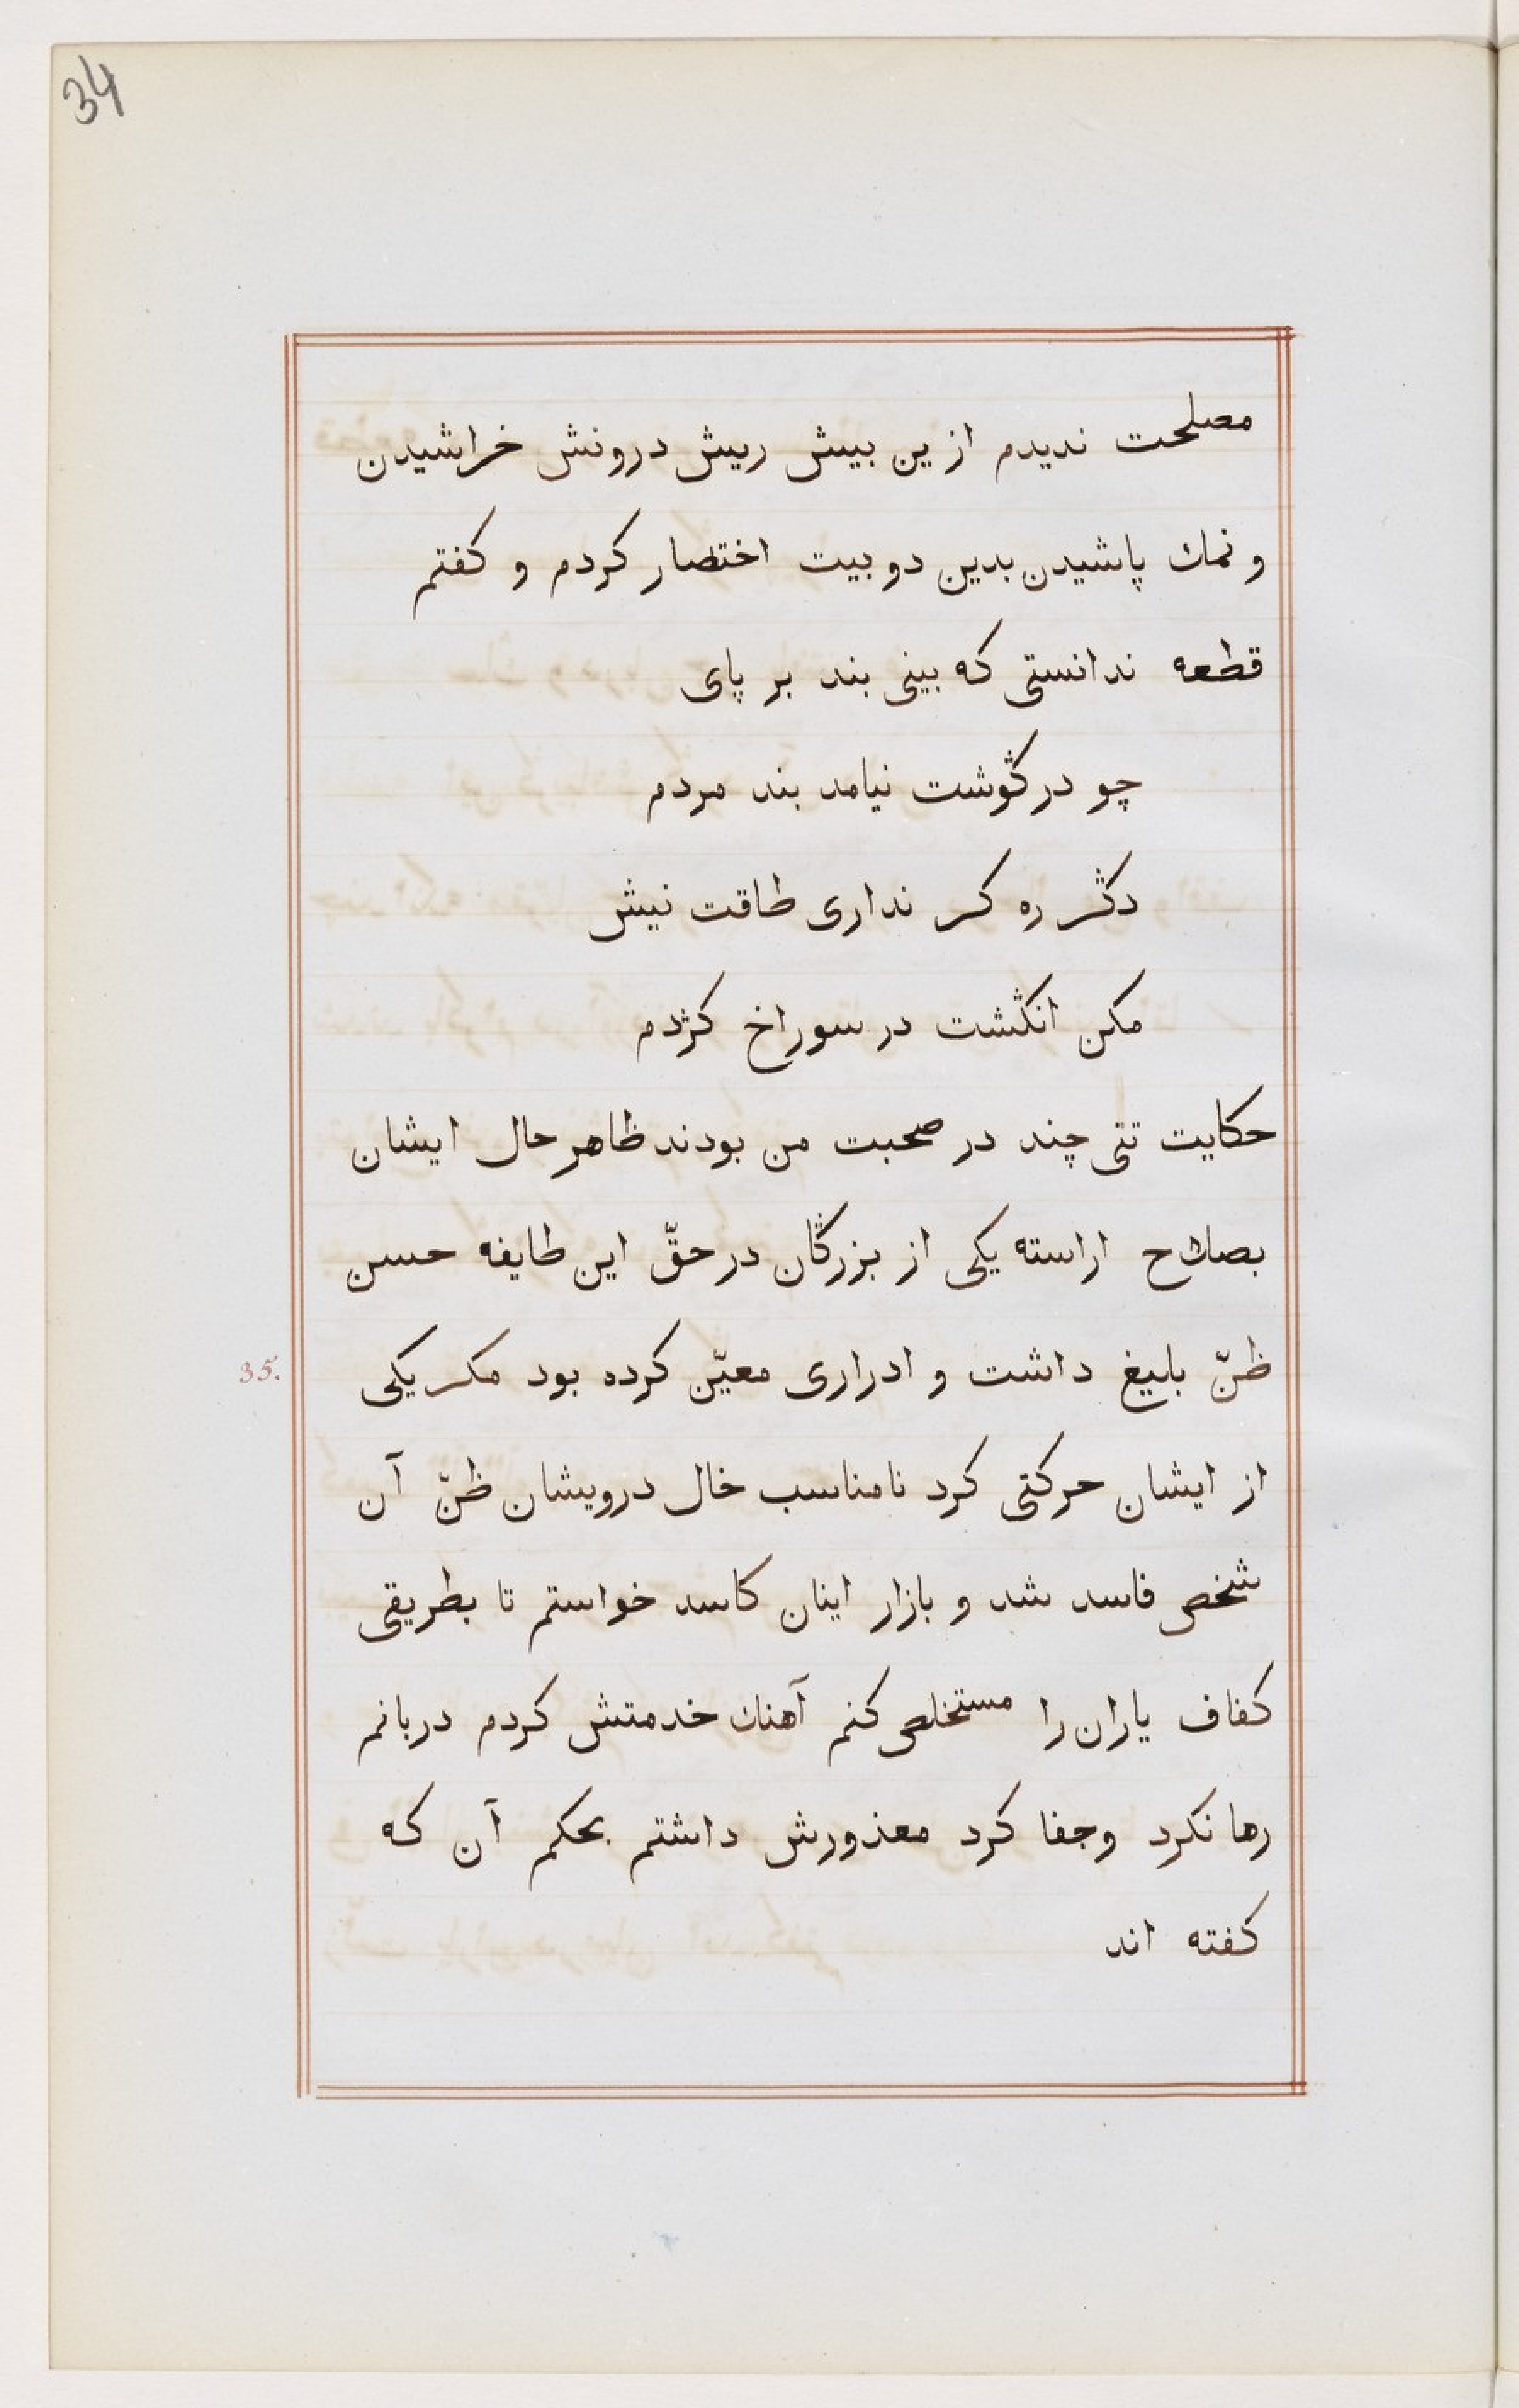 34
مصلحت ندیدم ازین بیش ریش درونش خراشیدن
و نمك پاشیدن بدین دو بیت اختصار کردم و کفتم
قطعه ندانستی که بینی بند بر پای
چو در گوشت نیامد بند مردم
دگر ره کر نداری طاقت نیش
مکن انگشت در سوراخ کژدم
حکایت تنی چند در صحبت من بودند ظاهر حال ایشان
بصلاح اراسته یکی از بزرگان در حقّ این طایفه حسن
ظنّ بلیغ داشت و ادراری معیّن کرده بود مکر یکی
35.
از ایشان حرکتی کرد نامناسب خال درویشان ظنّ آن
شخص فاسد شد و بازار اینان کاسد خواستم تا بطریقی
کفاف یاران را مستخلص کنم آهنك خدمتش کردم دربانم
رها نکرد وجفا کرد معذورش داشتم بحکم آن که
کفته اند